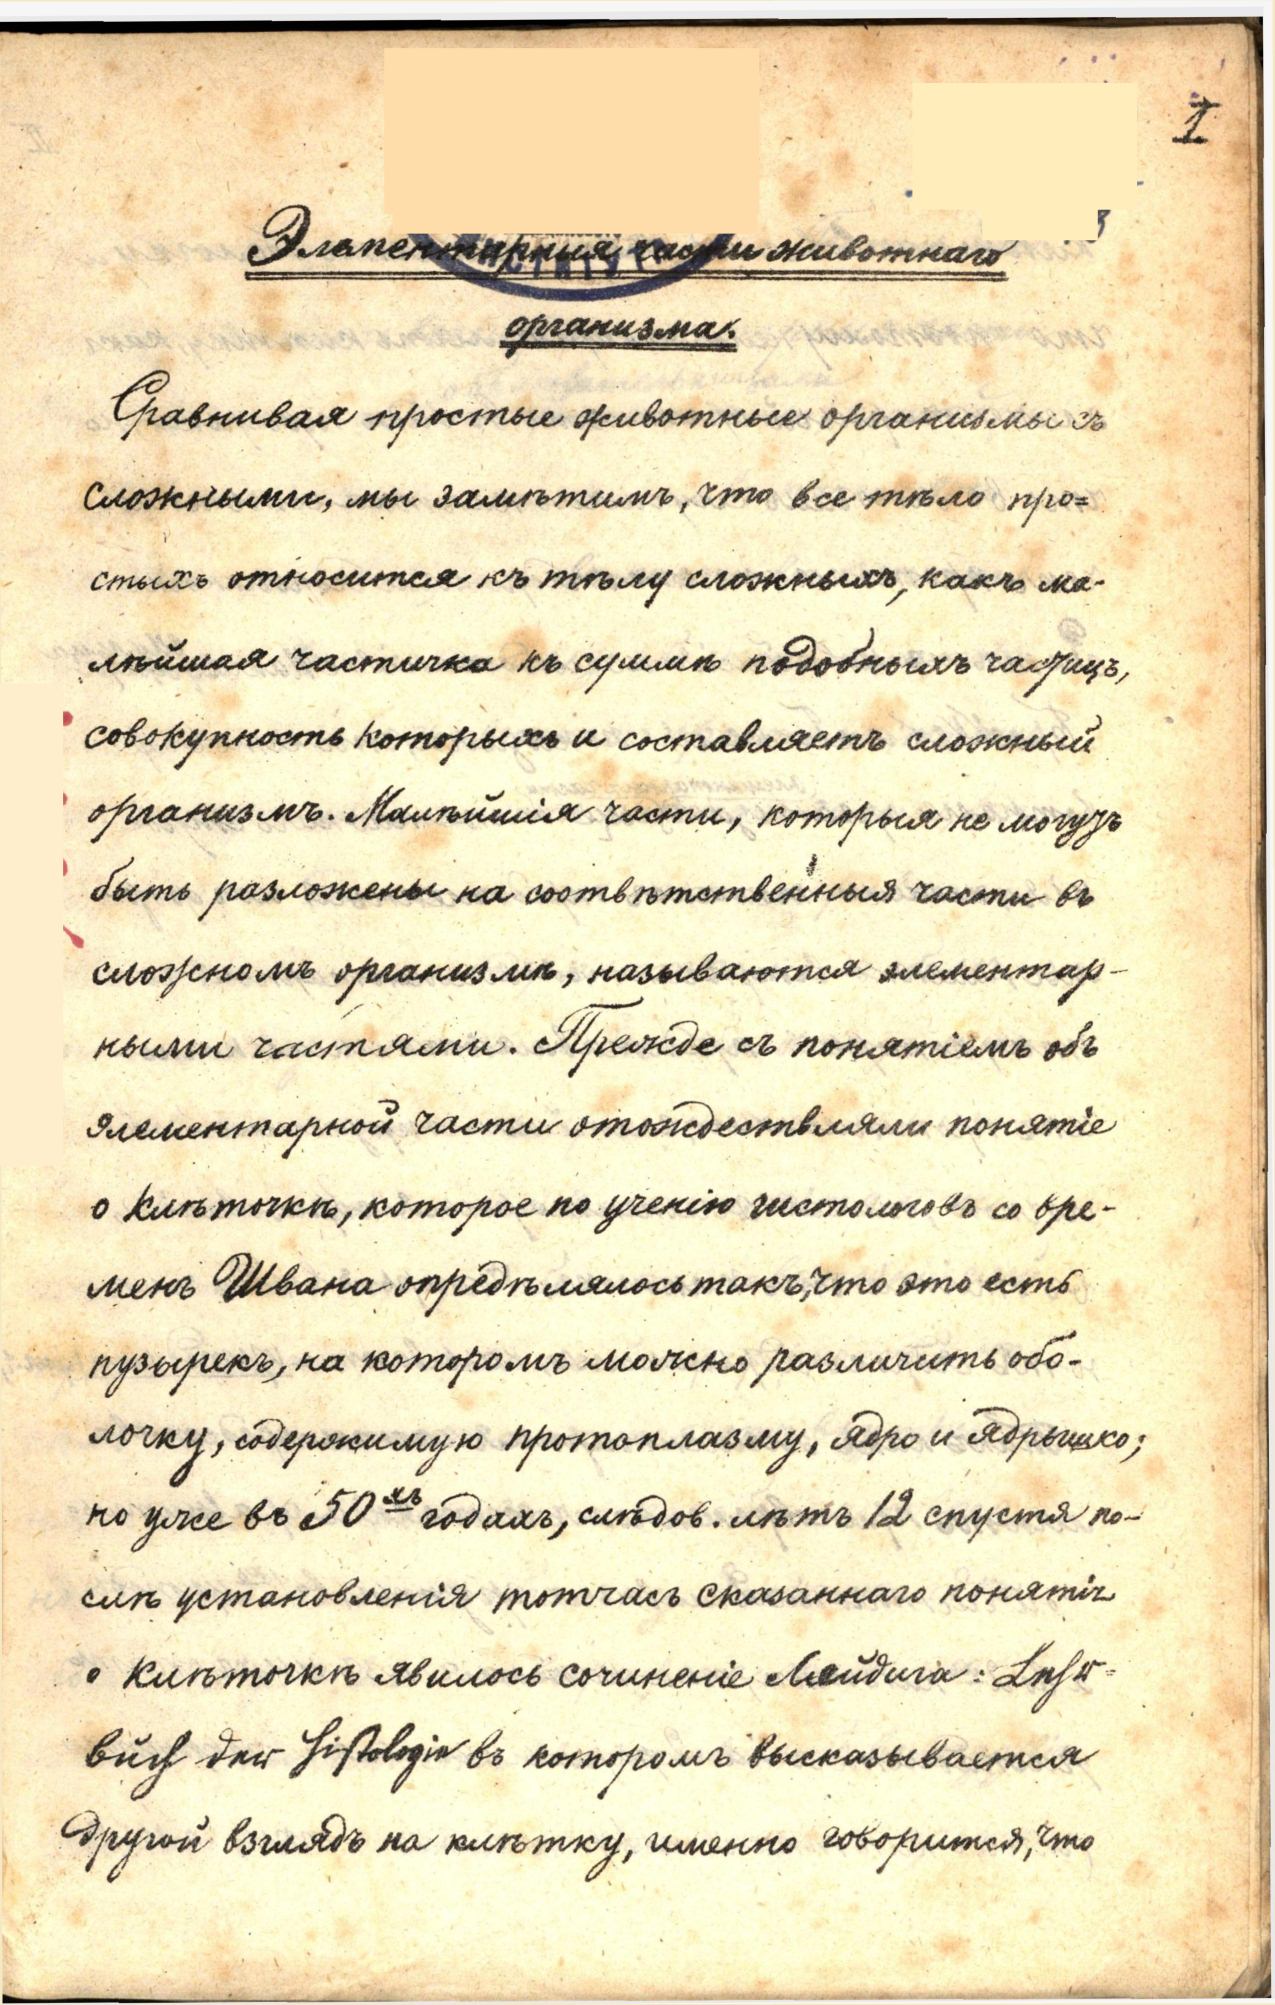 1
Элементарныя части животнаго
организма.
Сравнивая простые животные организмы съ
сложными, мы замѣтимъ, что все тѣло про=
стыхъ относится къ тѣлу сложныхъ, какъ ма-
лѣйшая частичка къ суммѣ подобныхъ частицъ,
совокупность которыхъ и составляетъ сложный
организмъ. Малѣйшія части, которыя не могутъ
быть разложены на соотвѣтственныя части въ
сложномъ организмѣ, называются элементар-
ными частями. Прежде съ понятіемъ объ
элементарной части отождествляли понятіе
о клѣточкѣ, которое по ученію гистологовъ со вре-
менъ Швана опредѣлялось такъ, что это есть
пузырекъ, на которомъ можно различить обо-
лочку, содержимую протоплазму, ядро и ядрышко;
но уже въ 50хъ годахъ, слѣдов. лѣтъ 12 спустя по-
слѣ установленія тотчасъ сказаннаго понятія
о клѣточкѣ явилось сочиненіе Лейдига: Lehr=
buch der Histologie въ которомъ высказывается
другой взглядъ на клѣтку, именно говорится, что